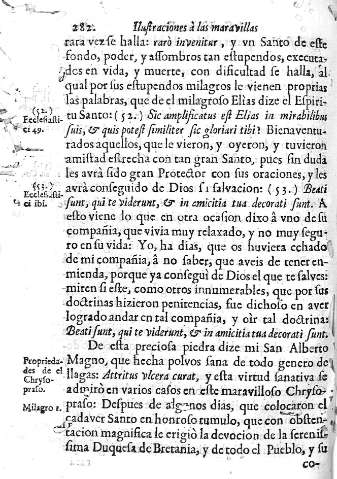 282. Ilustraciones à las maravillas
rara vez se halla: rarò invenitur, y vn Santo de este
fondo, poder, y assombros tan estupendos, executa-
dos en vida, y muerte, con dificultad se halla, al
qual por sus estupendos milagros le vienen proprias
las palabras, que de el milagroso Elìas dize el Espiri-
tu Santo: (52.) Sic amplificatus est Elias in mirabilibus
suis, & quis potest similiter sic gloriari tibi? Bienaventu-
rados aquellos, que le vieron, y oyeron, y tuvieron
amistad estrecha con tan gran Santo, pues sin duda
les avrà sido gran Protector con sus oraciones, y les
avrà conseguido de Dios su salvacion: (53.) Beati
sunt, qui te viderunt, & in amicitia tua decorati sunt. A
esto viene lo que en otra ocasion dixo à vno de su
compañia, que vivia muy relaxado, y no muy segu-
ro en su vida: Yo, ha dias, que os huviera echado
de mi compañia, à no saber, que aveis de tener en-
mienda, porque ya conseguì de Dios el que te salves:
miren si este, como otros innumerables, que por sus
doctrinas hizieron penitencias, fue dichoso en aver
logrado andar en tal compañia, y oìr tal doctrina:
Beati sunt, qui te viderunt, & in amicitia tua decorati sunt.
De esta preciosa piedra dize mi San Alberto
Magno, que hecha polvos sana de todo genero de
llagas: Attritus vlcera curat, y esta virtud sanativa se
admirò en varios casos en este maravilloso Chryso-
praso: Despues de algunos dias, que colocaron el
cadaver Santo en honroso tumulo, que con obsten-
tacion magnifica le erigiò la devocion de la serenis-
sima Duquesa de Bretania, y de todo el Pueblo, y su
co-
(52.)
Ecclesiasti-
ci 49.
(53.)
Ecclesiasti-
ci ibi.
Proprieda-
des de el
Chryso-
praso.
Milagro 1.